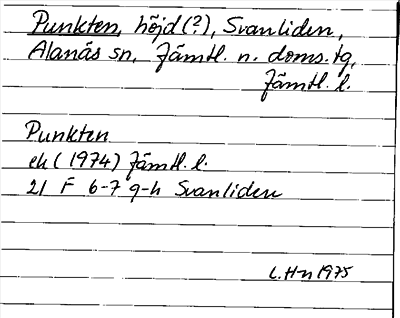 Punkten, höjd (?), Svanliden,
Alanäs sn, Jämtl. n. doms. tg,
Jämtl. l.
Punkten
ek (1974) Jämtl. l.
21 F 6-7 g-h Svanliden
L. H-n 1975